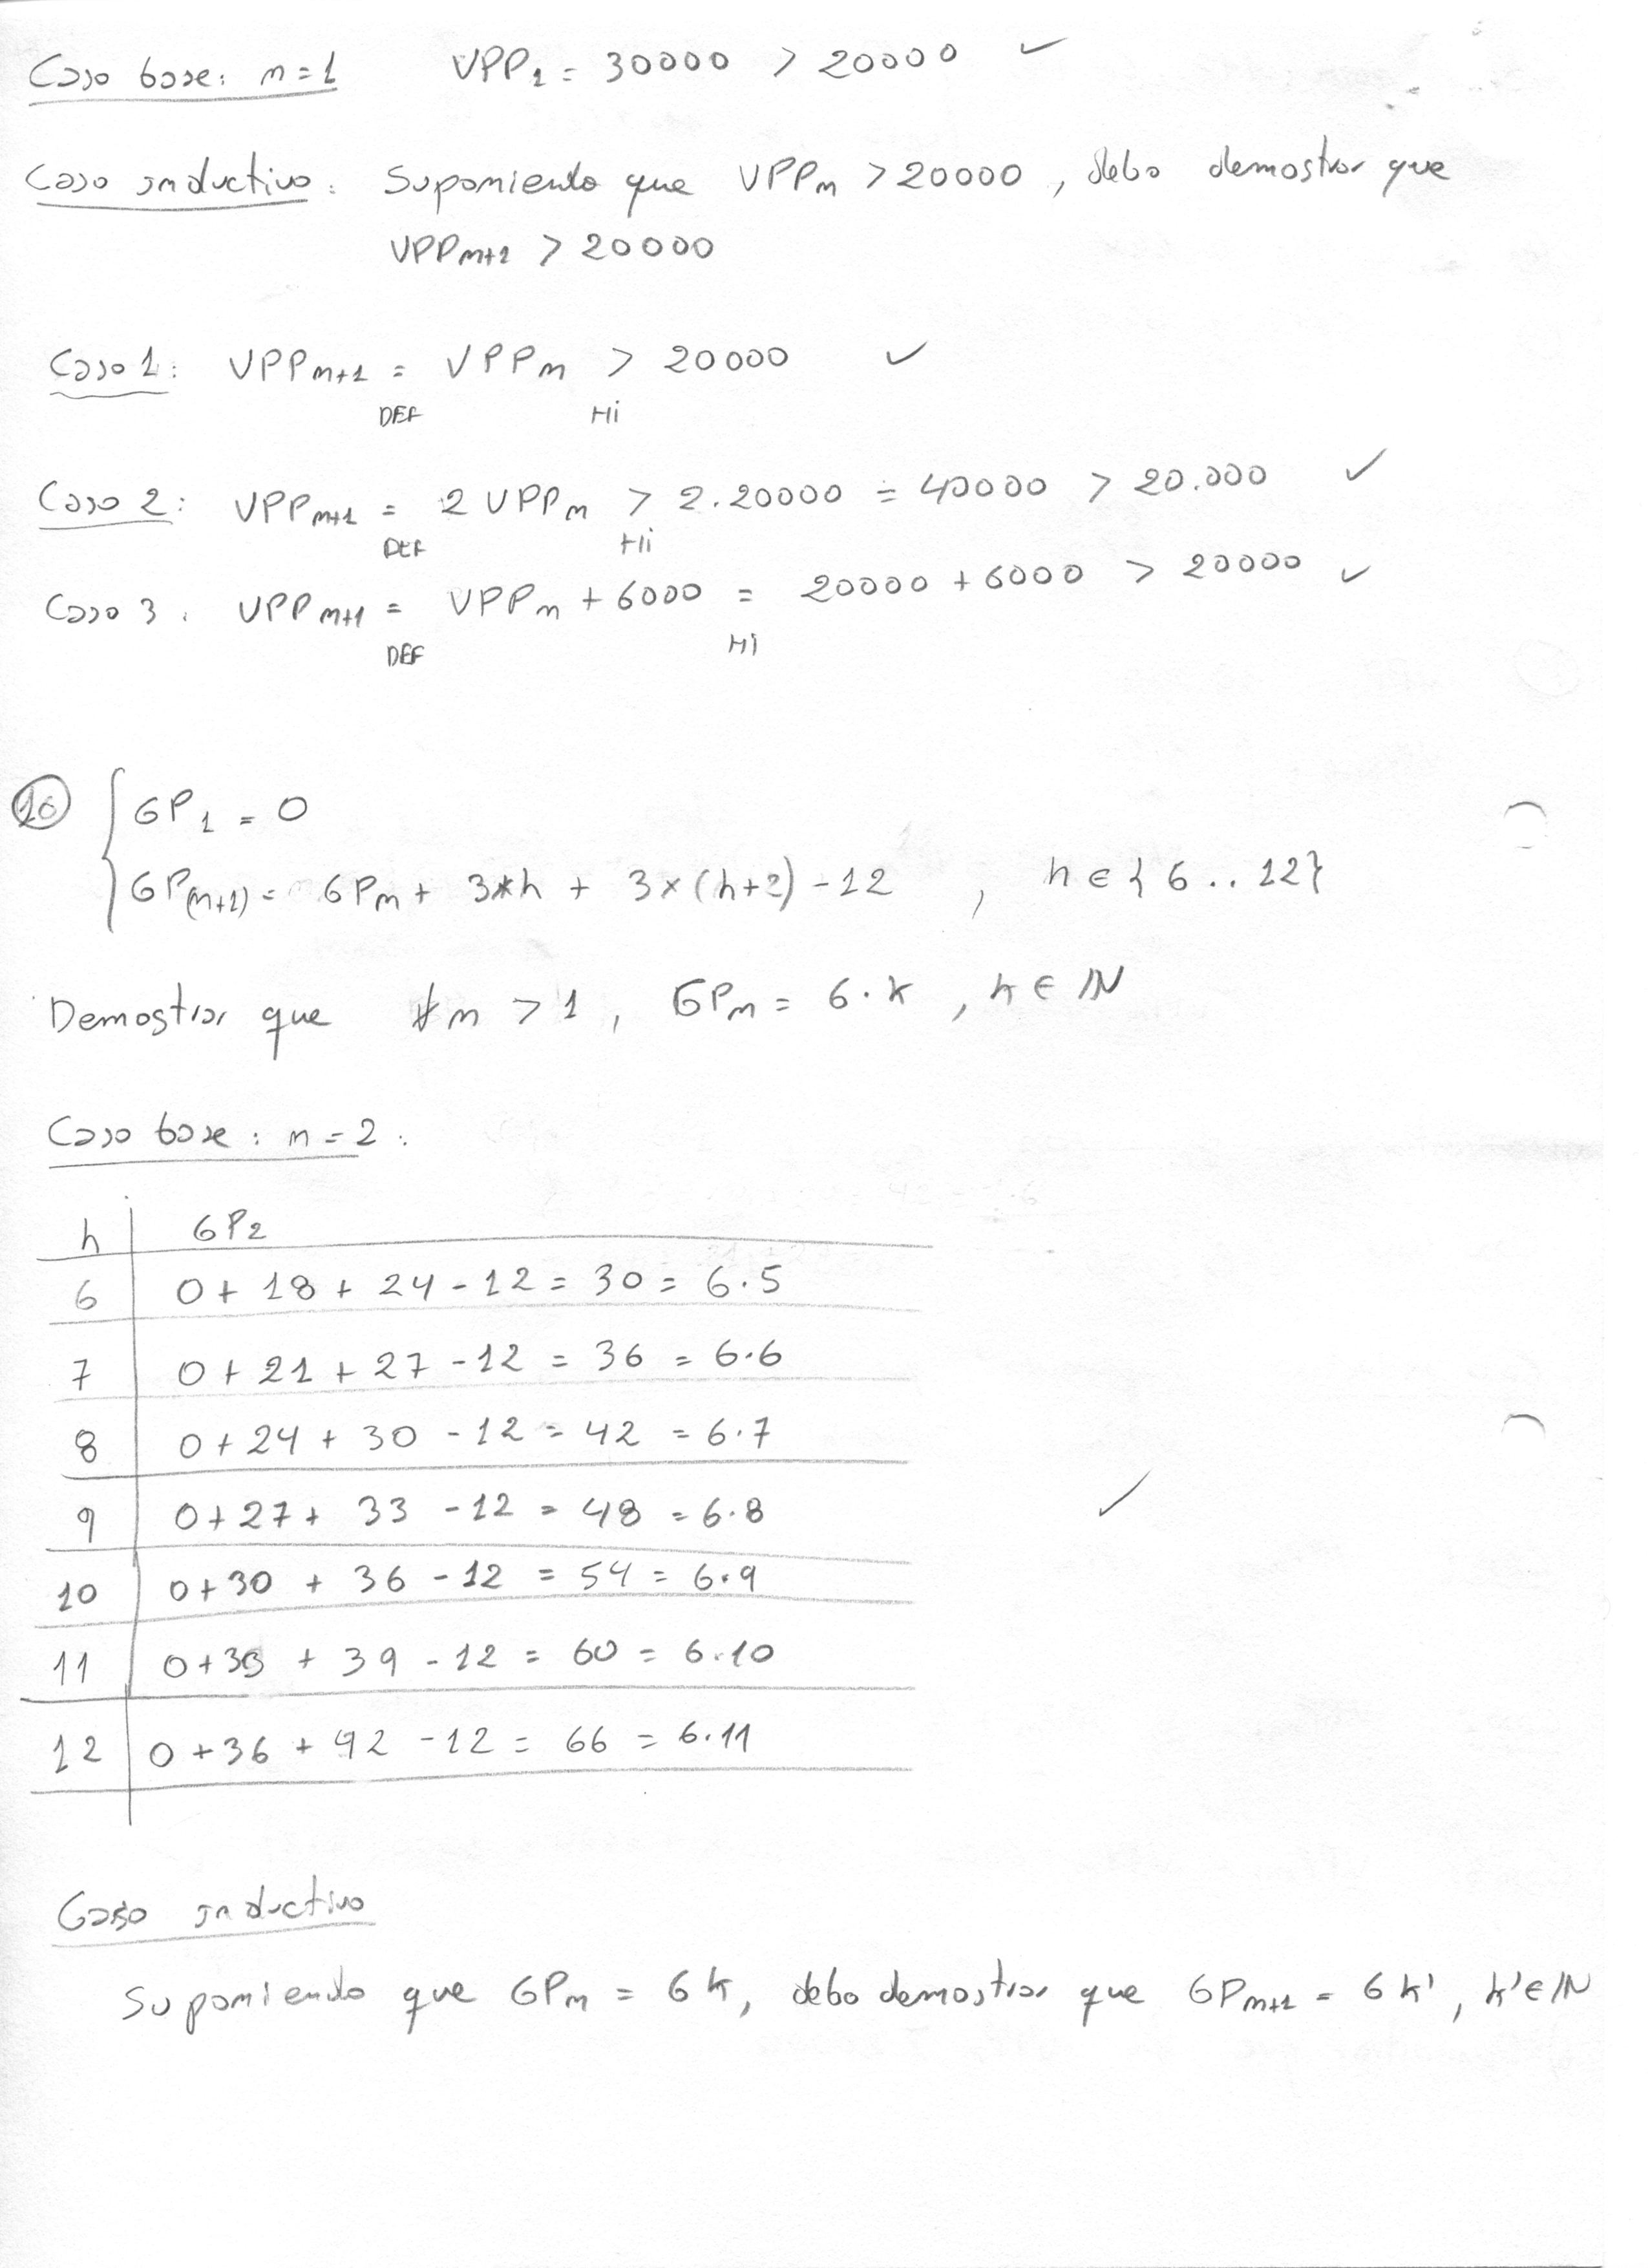 Caso base: n=1 VPP1 = 30000 > 20000 ✓
Caso inductivo: Suponiendo que VPPn > 20000, debo demostrar que
VPPn+1 > 20000
Caso 1: VPPn+1 = VPPn > 20000 ✓
DEF Hi
Caso 2: VPPn+1 = 2 VPPn > 2.20000 = 40000 > 20.000 ✓
DEF Hi
Caso 3: VPPn+1 = VPPn + 6000 = 20000 + 6000 > 20000 ✓
DEF Hi
10 GP1 = 0
GP(n+1) = GPn + 3*h + 3×(h+2) -12 , h ∈ {6..12}
Demostrar que ∀n > 1, GPn = 6.k , k ∈ IN
Caso base: n=2:
h GP2
6 0 + 18 + 24 - 12 = 30 = 6.5
7 0 + 21 + 27 - 12 = 36 = 6.6
8 0 + 24 + 30 - 12 = 42 = 6.7
9 0 + 27 + 33 - 12 = 48 = 6.8 ✓
10 0 + 30 + 36 - 12 = 54 = 6.9
11 0 + 33 + 39 - 12 = 60 = 6.10
12 0 + 36 + 42 - 12 = 66 = 6.11
Caso inductivo
Suponiendo que GPn = 6k, debo demostrar que GPn+1 = 6k', k' ∈ IN